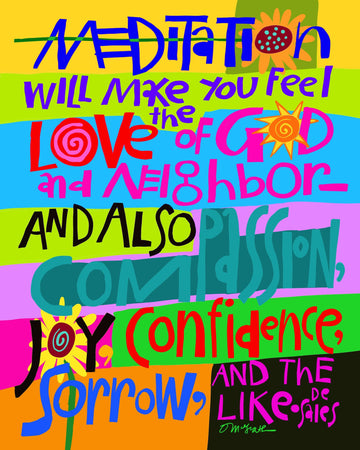 MEDITATION
WILL MAKE YOU FEEL
the
LOVE of GOD
and NEIghbOR_
AND ALSO
COMPASSION,
JOY, Confidence,
SORROW, AND THE
LIKE. DE SALES